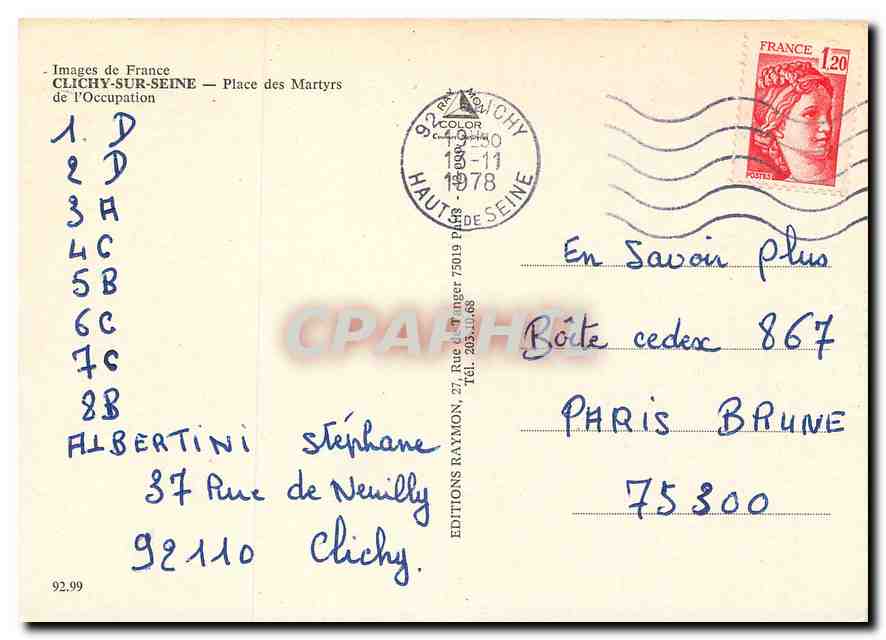 Images de France
CLICHY-SUR-SEINE — Place des Martyrs
de l'Occupation
1 D
2 D
3 A
4 C
5 B
6 C
7 C
8 B
ALBERTINI Stéphane
37 Rue de Neuilly
92110 Clichy.
92.99
RAYMON
COLOR
92 CLICHY
13-11
1978
HAUTS DE SEINE
EDITIONS RAYMON, 27, Rue de Tanger 75019 Paris
Tél. 203.10.68
FRANCE 1,20
POSTES
En Savoir plus
Boîte cedex 867
PARIS BRUNE
75300
CPARHO